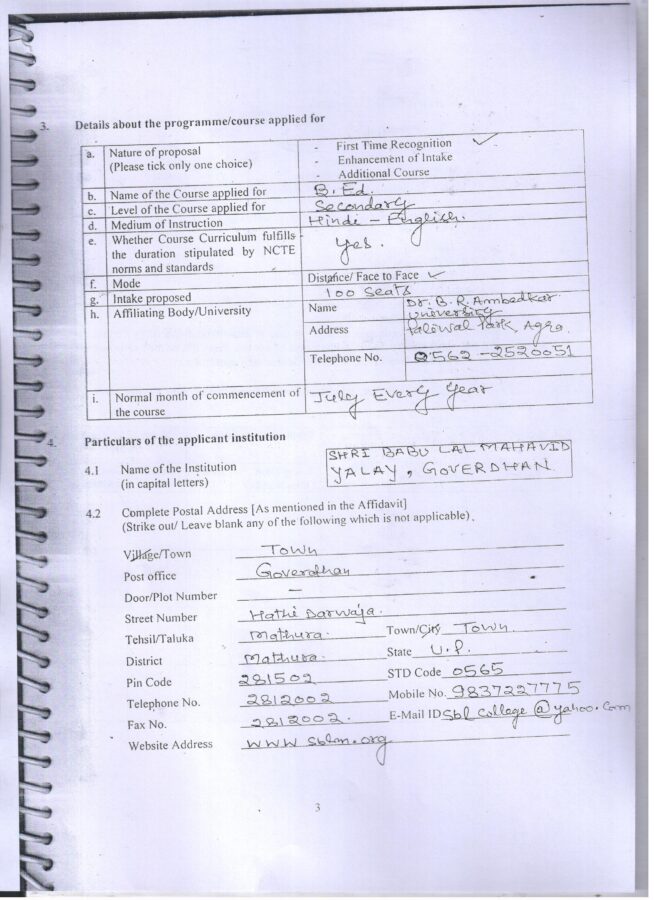 3. Details about the programme/course applied for
a. Nature of proposal - First Time Recognition ✓
(Please tick only one choice) - Enhancement of Intake
- Additional Course
b. Name of the Course applied for B. Ed.
c. Level of the Course applied for Secondary
d. Medium of Instruction Hindi - English.
e. Whether Course Curriculum fulfills
the duration stipulated by NCTE Yes.
norms and standards
f. Mode Distance/ Face to Face ✓
g. Intake proposed 100 Seats
h. Affiliating Body/University Name Dr. B. R. Ambedkar
University
Address Paliwal Park, Agra.
Telephone No. 0562 - 2520051
i. Normal month of commencement of July Every Year
the course
4. Particulars of the applicant institution
4.1 Name of the Institution SHRI BABU LAL MAHAVID
(in capital letters) YALAY, GOVERDHAN
4.2 Complete Postal Address [As mentioned in the Affidavit]
(Strike out/ Leave blank any of the following which is not applicable)
Village/Town Town
Post office Goverdhan
Door/Plot Number -
Street Number Hathi Darwaja.
Tehsil/Taluka Mathura. Town/City Town.
District Mathura. State U.P.
Pin Code 281502 STD Code 0565
Telephone No. 2812002 Mobile No. 9837227775
Fax No. 2812002. E-Mail ID Sbl College @ yahoo.Com
Website Address WWW sblm.org
3